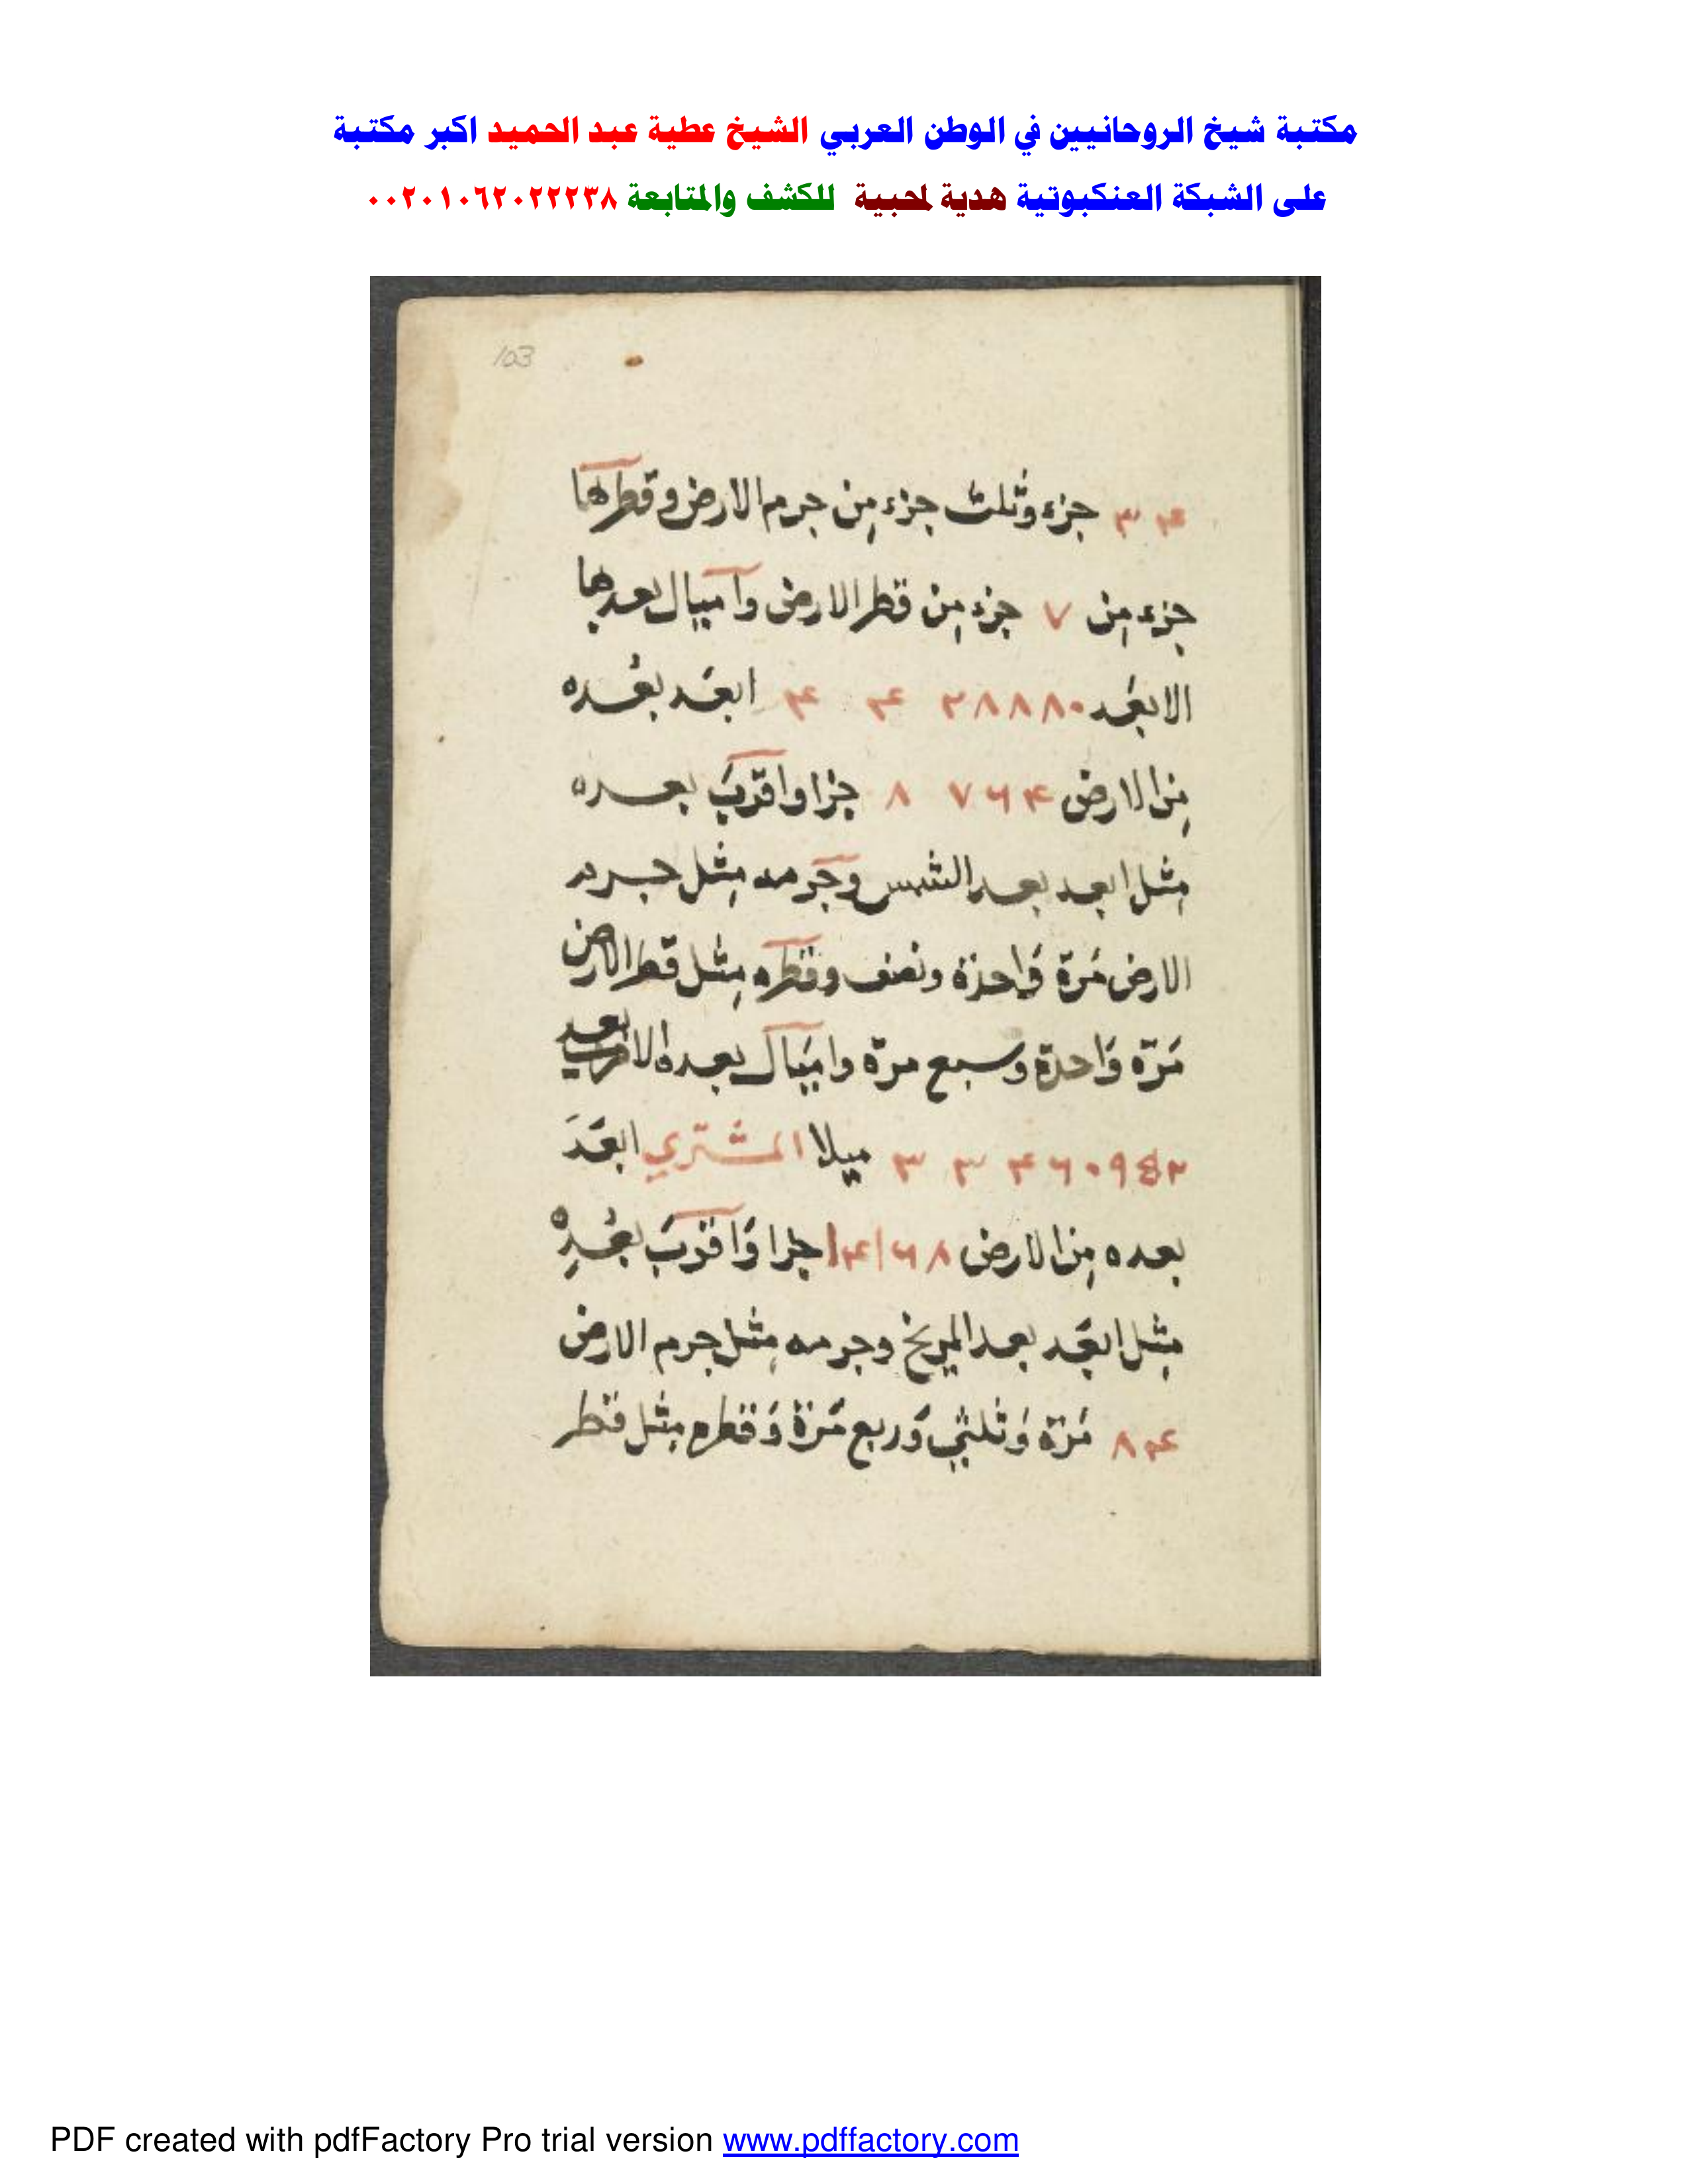 مكتبة شيخ الروحانيين في الوطن العربي الشيخ عطية عبد الحميد اكبر مكتبة
على الشبكة العنكبوتية هدية لمحبية للكشف والمتابعة ٠٠٢٠١٠٦٢٠٢٢٢٣٨
103
جزء وثلث جزء من جرم الارض وقطرها
جزء من ٧ جزء من قطر الارض واميال بعدها
الابعد ابعد بعده
من الارض جزا واقرب بعده
مثل ابعد بعد الشمس وجرمه مثل جرم
الارض مرة واحدة ونصف وقطره مثل قطر الارض
مرة واحدة وسبع مرة واميال بعده الاقرب
ميلا المشتري ابعد
بعده من الارض جزا واقرب بعده
مثل ابعد بعد المريخ وجرمه مثل جرم الارض
مرة وثلثي وربع مرة وقطره مثل قطر
PDF created with pdfFactory Pro trial version www.pdffactory.com